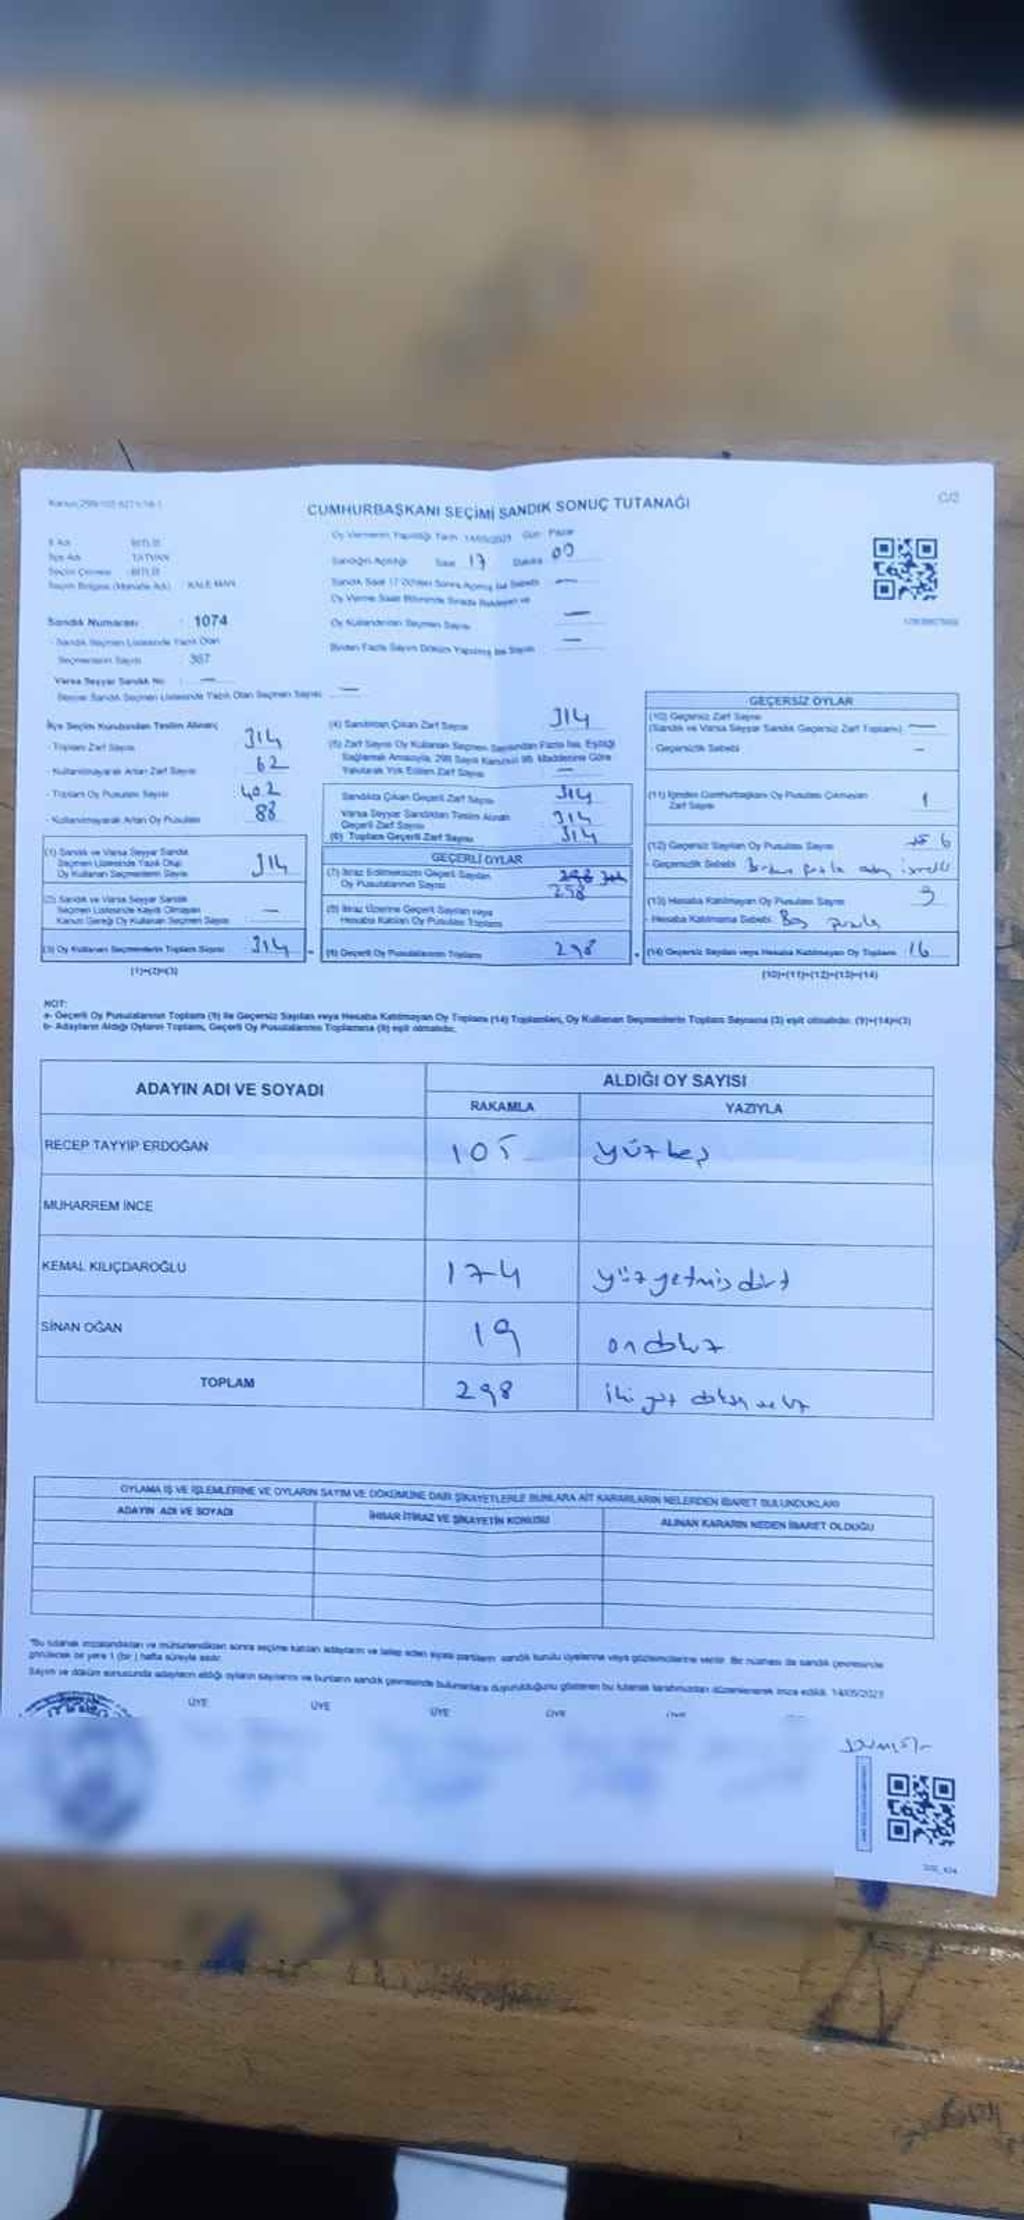 C/2
CUMHURBAŞKANI SEÇİMİ SANDIK SONUÇ TUTANAĞI
Oy Vermenin Yapıldığı Tarih 14/05/2023 Gün Pazar
İl Adı BİTLİS
İlçe Adı TATVAN
Seçim Çevresi BİTLİS
Sandığın Açıldığı Saat 17 Dakika 00
Sandık Numarası : 1074
Sandık Seçmen Listesinde Yazılı Olan
Seçmenlerin Sayısı 367
Oy Kullandırılan Seçmen Sayısı —
Birden Fazla Sayım Döküm Yapılmış İse Sayısı —
Varsa Seyyar Sandık No : —
Seyyar Sandık Seçmen Listesinde Yazılı Olan Seçmen Sayısı —
İlçe Seçim Kurulundan Teslim Alınan;
- Toplam Zarf Sayısı 314
- Kullanılmayarak Artan Zarf Sayısı 62
- Toplam Oy Pusulası Sayısı 402
- Kullanılmayarak Artan Oy Pusulası 88
(1) Sandık ve Varsa Seyyar Sandık
Seçmen Listesinde Yazılı Olup
Oy Kullanan Seçmenlerin Sayısı 314
(2) Sandık ve Varsa Seyyar Sandık
Seçmen Listesinde Kayıtlı Olmayan
Kanun Gereği Oy Kullanan Seçmen Sayısı —
(3) Oy Kullanan Seçmenlerin Toplam Sayısı 314
(1)+(2)=(3)
(4) Sandıktan Çıkan Zarf Sayısı 314
(5) Zarf Sayısı Oy Kullanan Seçmen Sayısından Fazla İse, Eşitliği
Sağlamak Amacıyla, 298 Sayılı Kanunun 98. Maddesine Göre
Yakılarak Yok Edilen Zarf Sayısı —
Sandıkta Çıkan Geçerli Zarf Sayısı 314
Varsa Seyyar Sandıktan Teslim Alınan
Geçerli Zarf Sayısı 314
(6) Toplam Geçerli Zarf Sayısı 314
GEÇERLİ OYLAR
(7) İtiraz Edilmeksizin Geçerli Sayılan
Oy Pusulalarının Sayısı 298
(8) İtiraz Üzerine Geçerli Sayılan veya
Hesaba Katılan Oy Pusulası Toplamı
(9) Geçerli Oy Pusulalarının Toplamı 298
GEÇERSİZ OYLAR
(10) Geçersiz Zarf Sayısı
(Sandık ve Varsa Seyyar Sandık Geçersiz Zarf Toplamı) —
- Geçersizlik Sebebi —
(11) İçinden Cumhurbaşkanı Oy Pusulası Çıkmayan
Zarf Sayısı 1
(12) Geçersiz Sayılan Oy Pusulası Sayısı 6
- Geçersizlik Sebebi Birden fazla
(13) Hesaba Katılmayan Oy Pusulası Sayısı
- Hesaba Katılmama Sebebi Boş pusula
(14) Geçersiz Sayılan veya Hesaba Katılmayan Oy Toplamı 16
(10)+(11)+(12)+(13)=(14)
NOT:
a- Geçerli Oy Pusulalarının Toplamı (9) ile Geçersiz Sayılan veya Hesaba Katılmayan Oy Toplamı (14) Toplamları, Oy Kullanan Seçmenlerin Toplam Sayısına (3) eşit olmalıdır. (9)+(14)=(3)
b- Adayların Aldığı Oyların Toplamı, Geçerli Oy Pusulalarının Toplamına (9) eşit olmalıdır.
ADAYIN ADI VE SOYADI
ALDIĞI OY SAYISI
RAKAMLA YAZIYLA
RECEP TAYYIP ERDOĞAN 105 yüzbeş
MUHARREM İNCE
KEMAL KILIÇDAROĞLU 174 yüzyetmişdört
SİNAN OĞAN 19 ondokuz
TOPLAM 298 iki yüz doksan sekiz
OYLAMA İŞ VE İŞLEMLERİNE VE OYLARIN SAYIM VE DÖKÜMÜNE DAİR ŞİKAYETLERLE BUNLARA AİT KARARLARIN NELERDEN İBARET BULUNDUKLARI
ADAYIN ADI VE SOYADI
İHBAR İTİRAZ VE ŞİKAYETİN KONUSU
ALINAN KARARIN NEDEN İBARET OLDUĞU
ÜYE ÜYE ÜYE ÜYE